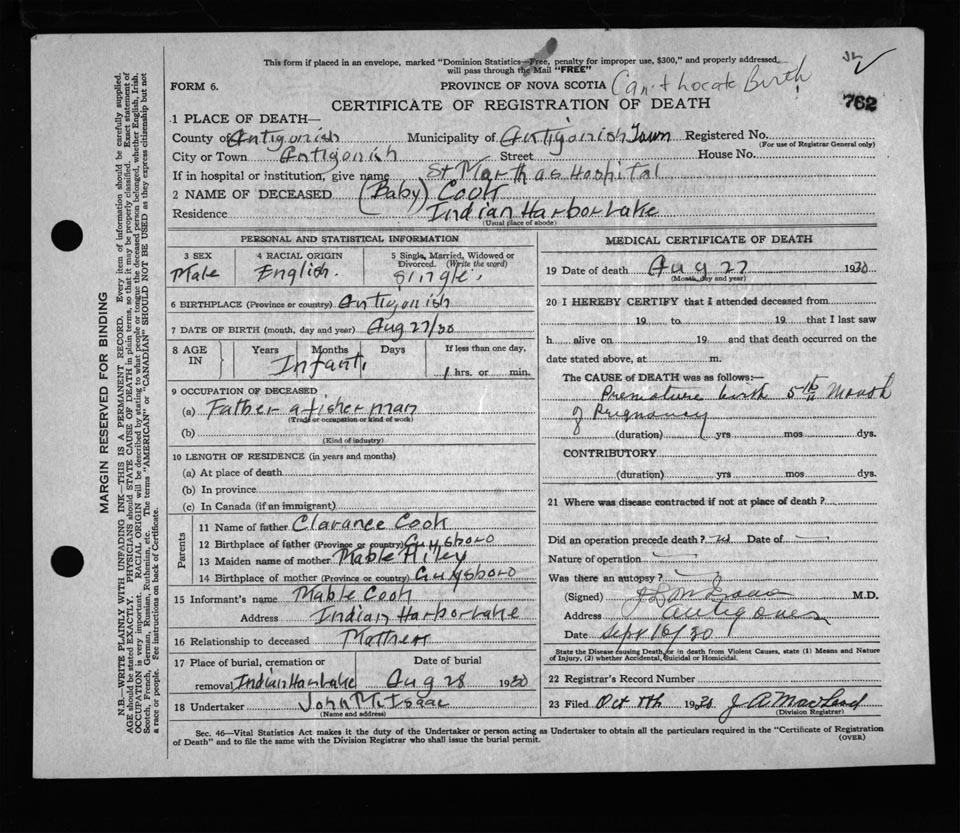 This form if placed in an envelope, marked "Dominion Statistics—Free, penalty for improper use, $300," and properly addressed, will pass through the Mail "FREE"
FORM 6.
PROVINCE OF NOVA SCOTIA
Can't Locate Birth
762
CERTIFICATE OF REGISTRATION OF DEATH
1 PLACE OF DEATH—
County of Antigonish Municipality of Antigonish Town Registered No.
(For use of Registrar General only)
City or Town Antigonish Street House No.
If in hospital or institution, give name St Marthas Hospital
2 NAME OF DECEASED (Baby) Cook
Residence Indian Harbor Lake
(Usual place of abode)
PERSONAL AND STATISTICAL INFORMATION
3 SEX Male
4 RACIAL ORIGIN English.
5 Single, Married, Widowed or Divorced. (Write the word) Single
6 BIRTHPLACE (Province or country) Antigonish
7 DATE OF BIRTH (month, day and year) Aug 27/30
8 AGE IN Years Months Days If less than one day,
Infant 1 hrs. or min.
9 OCCUPATION OF DECEASED
(a) Father a fisherman
(Trade or occupation or kind of work)
(b)
(Kind of industry)
10 LENGTH OF RESIDENCE (in years and months)
(a) At place of death
(b) In province
(c) In Canada (if an immigrant)
Parents
11 Name of father Clarance Cook
12 Birthplace of father (Province or country) Guysboro
13 Maiden name of mother Mable
14 Birthplace of mother (Province or country) Guysboro
15 Informant's name Mable Cook
Address Indian Harbor Lake
16 Relationship to deceased Mother
17 Place of burial, cremation or removal Indian Har Lake
Date of burial Aug 28 1930
18 Undertaker John McIsaac
(Name and address)
MEDICAL CERTIFICATE OF DEATH
19 Date of death Aug 27 1930
(Month, day and year)
20 I HEREBY CERTIFY that I attended deceased from
19 to 19 that I last saw
h alive on 19 and that death occurred on the
date stated above, at m.
The CAUSE of DEATH was as follows:—
Premature birth 5th Month
of Pregnancy
(duration) yrs mos dys.
CONTRIBUTORY
(duration) yrs mos dys.
21 Where was disease contracted if not at place of death?
Did an operation precede death? Date of
Nature of operation
Was there an autopsy?
(Signed) M.D.
Address
Date Sept 16/30
State the Disease causing Death, or in death from Violent Causes, state (1) Means and Nature of Injury, (2) whether Accidental, Suicidal or Homicidal.
22 Registrar's Record Number
23 Filed Oct 1930 J A MacLeod
(Division Registrar)
Sec. 46—Vital Statistics Act makes it the duty of the Undertaker or person acting as Undertaker to obtain all the particulars required in the "Certificate of Registration
of Death" and to file the same with the Division Registrar who shall issue the burial permit.
(OVER)
MARGIN RESERVED FOR BINDING
N.B.—WRITE PLAINLY WITH UNFADING INK—THIS IS A PERMANENT RECORD. Every item of information should be carefully supplied.
AGE should be stated EXACTLY. PHYSICIANS should STATE CAUSE OF DEATH in plain terms, so that it may be properly classified. Exact statement of
OCCUPATION is very important. RACIAL ORIGIN will be described by stating to what people or tongue the deceased person belonged, whether English, Irish,
Scotch, French, German, Russian, Ruthenian, etc. The terms "AMERICAN" or "CANADIAN" SHOULD NOT BE USED as they express citizenship but not
a race or people. See instructions on back of Certificate.